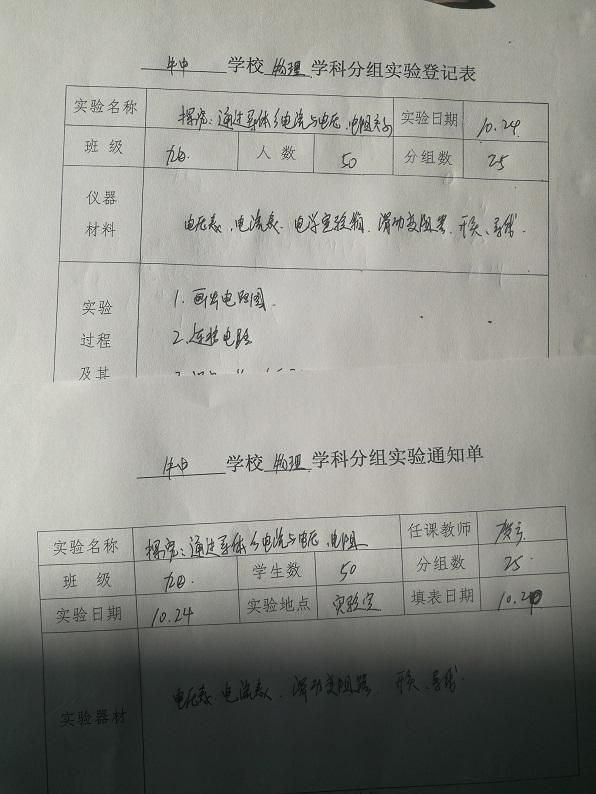 牛中 学校 物理 学科分组实验登记表
实验名称 探究:通过导体的电流与电压、电阻关系 实验日期 10.24
班 级 九(四) 人 数 50 分组数 25
仪器
材料
电压表、电流表、电学实验箱、滑动变阻器、开关、导线.
实验
过程
及其
1. 画出电路图
2. 连接电路
牛中 学校 物理 学科分组实验通知单
实验名称 探究:通过导体的电流与电压、电阻 任课教师
班 级 九(四) 学生数 50 分组数 25
实验日期 10.24 实验地点 实验室 填表日期
实验器材 电压表、电流表、滑动变阻器、开关、导线.